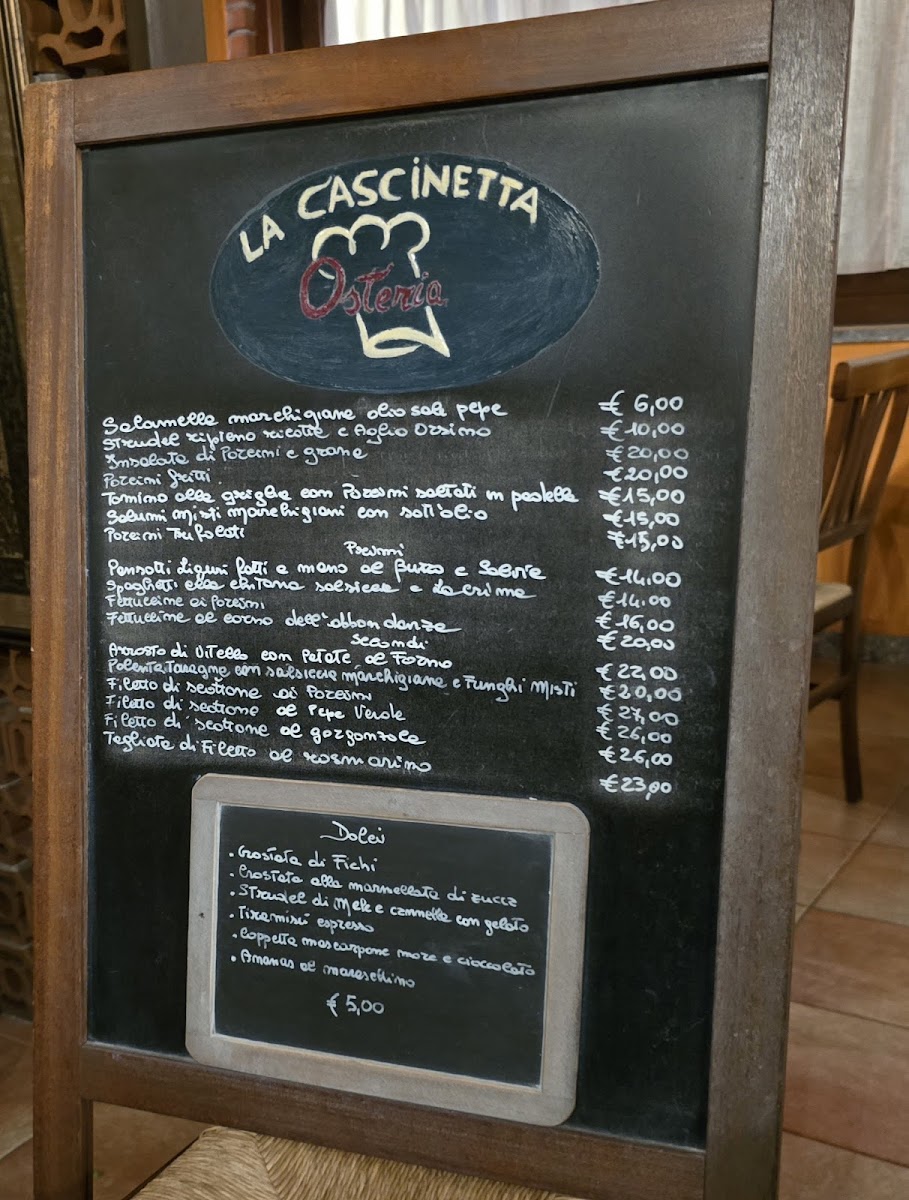 LA CASCINETTA
Osteria
Salamelle marchigiane olio sale pepe € 6,00
Strudel ripieno ricotta e Aglio Orsino € 10,00
Insalata di Porcini e grana € 20,00
Porcini fritti € 20,00
Tomino alla griglia con Porcini saltati in padella € 15,00
Salumi Misti Marchigiani con sott'olio € 15,00
Porcini Trifolati € 15,00
Primi
Pansotti liguri fatti a mano al Burro e Salvia € 14.00
Spaghetti alla chitarra salsicce e € 14.00
Fettuccine ai Porcini € 16,00
Fettuccine al corno dell'abbondanza € 20,00
Secondi
Arrosto di Vitello con Patate al Forno € 22,00
Polenta Taragna con salsiccia marchigiana e Funghi Misti € 20,00
Filetto di scottona ai Porcini € 27,00
Filetto di scottona al Pepe Verde € 26,00
Filetto di scottona al gorgonzola € 26,00
Tagliata di Filetto al rosmarino € 23,00
Dolci
• Crostata di Fichi
• Crostata alla marmellata di zucca
• Strudel di Mele e cannella con gelato
• Tiramisù espresso
• Coppetta mascarpone more e cioccolato
• Ananas al maraschino
€ 5,00